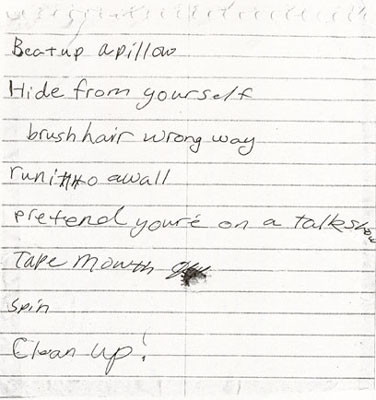 Beat up a pillow
Hide from yourself
brush hair wrong way
run into a wall
pretend you're on a talk show
Tape mouth
spin
Clean up!